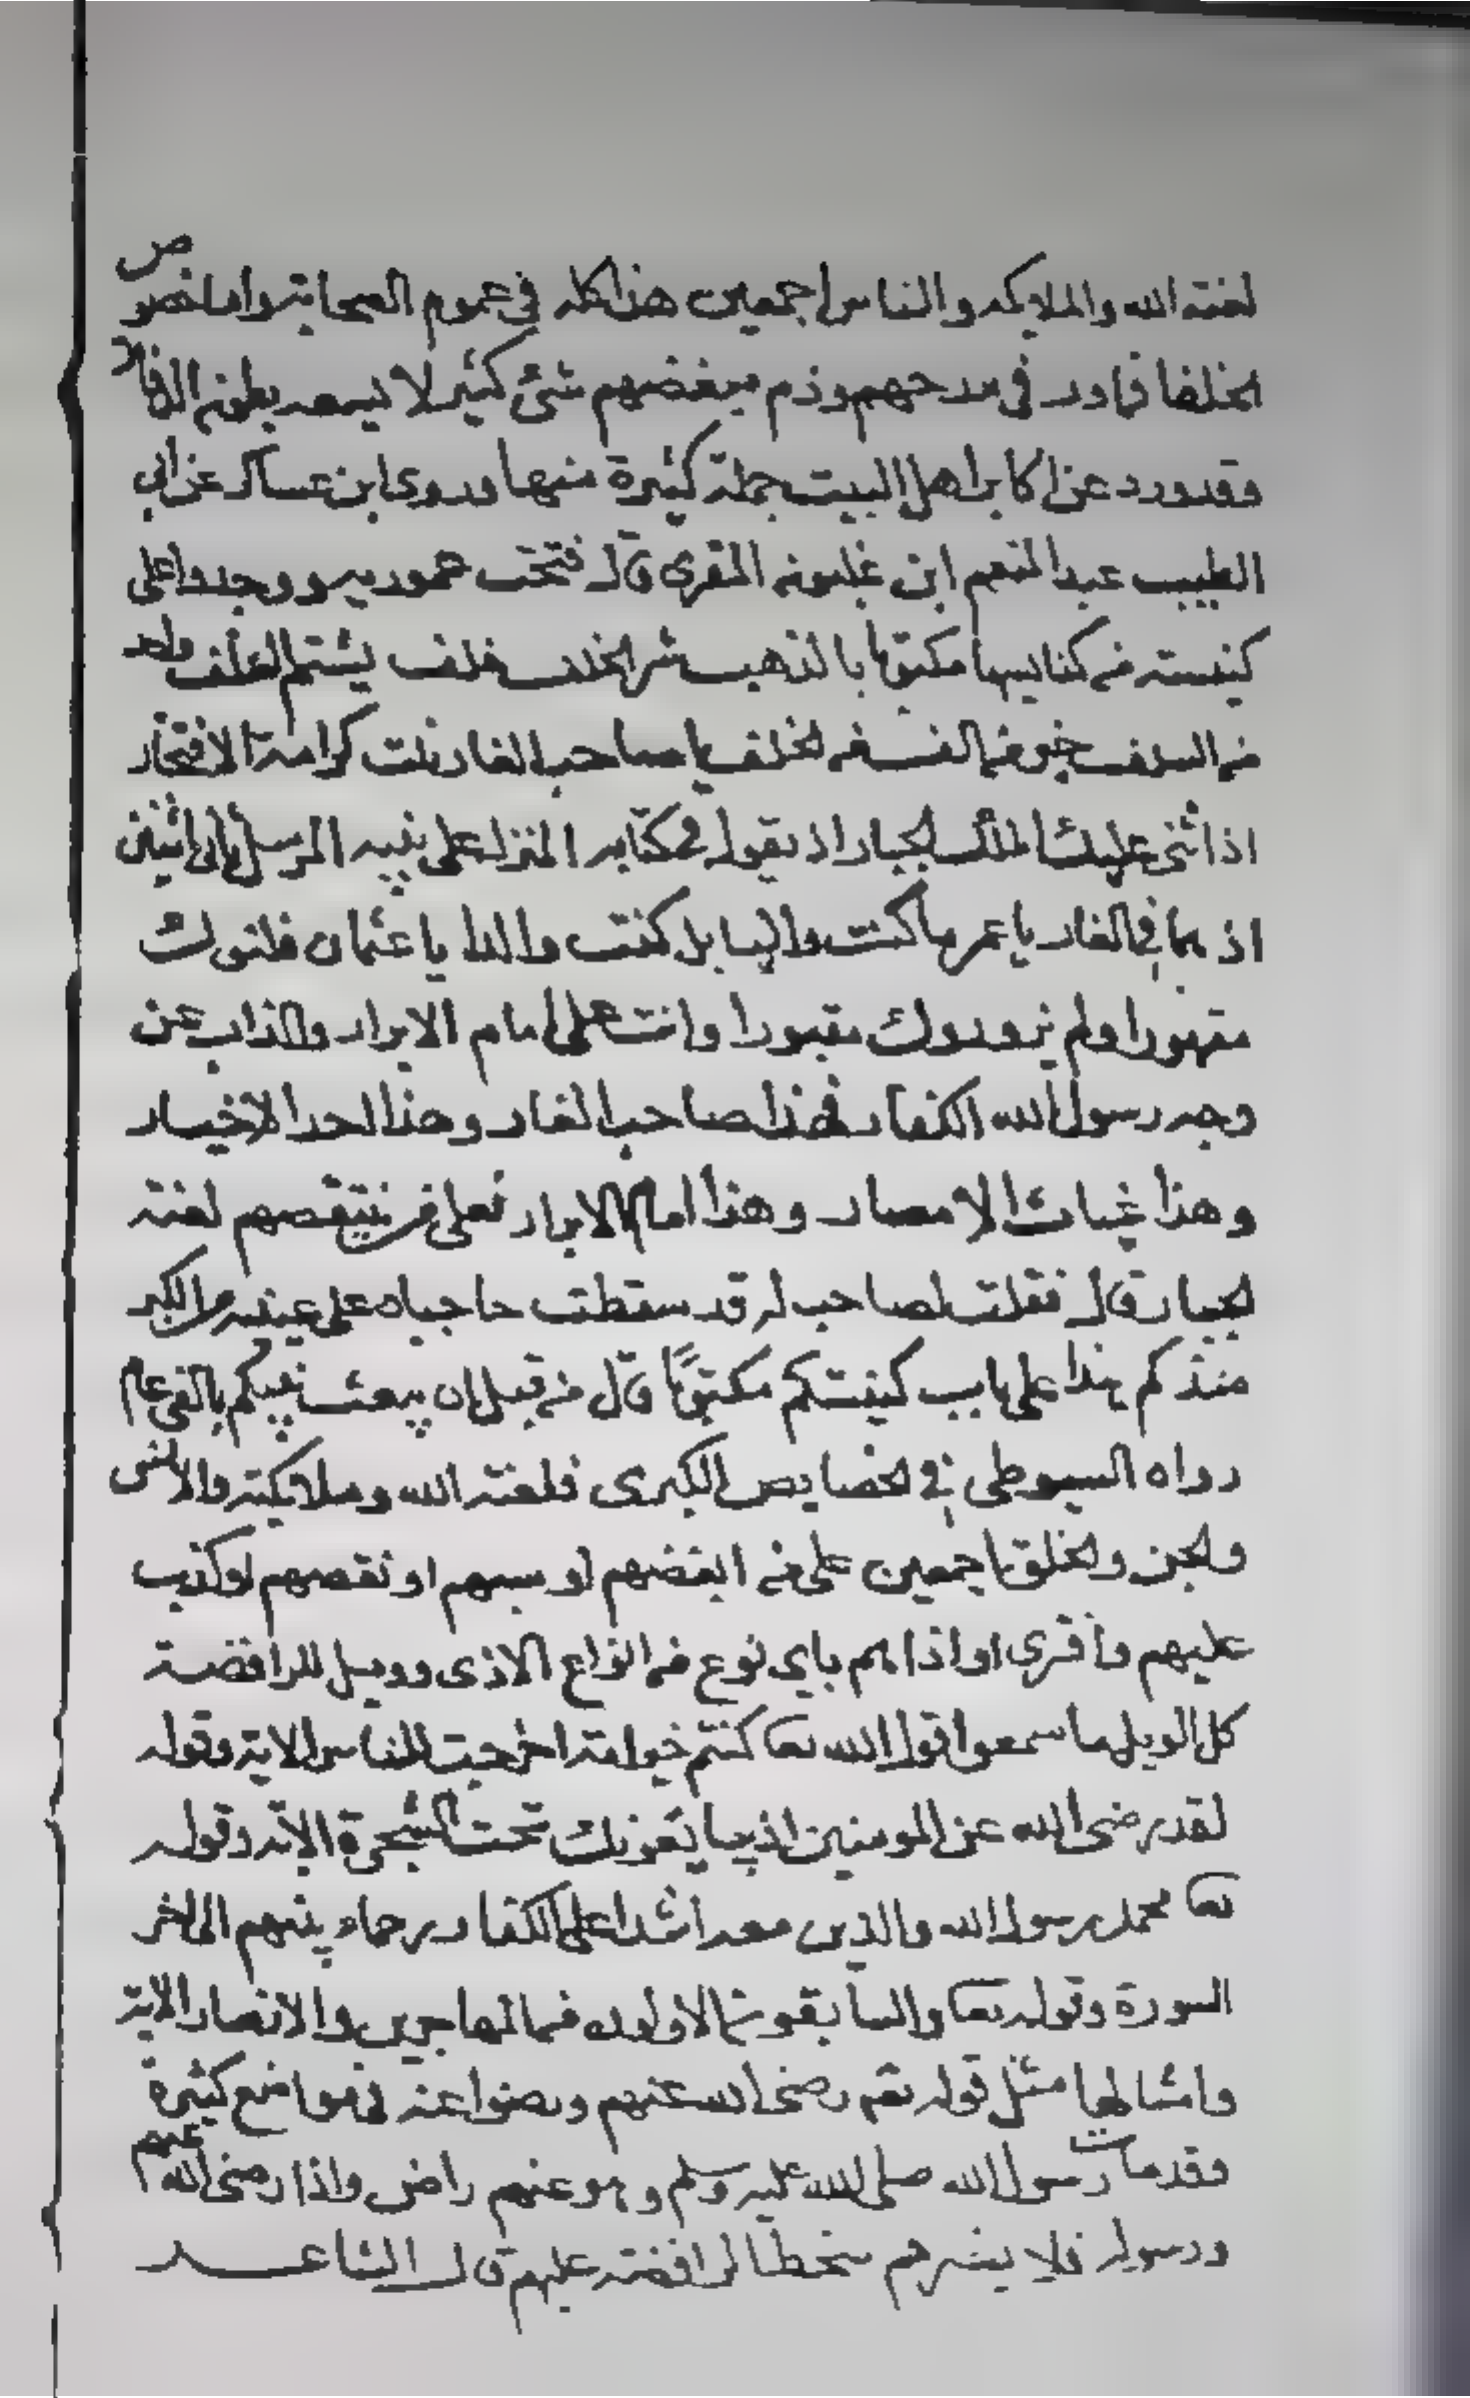 لعنة الله والملايكه والناس اجمعين هذا كله في عموم الصحابة واما خصوص
الخلفا فماورد في مدحهم وذم مبغضهم شئ كثير لا يسعه بطون الدفا
وقدورد عن اكابر اهل البيت جملة كثيرة منها وروى ابن عساكر عن ابي
الطيب عبد المنعم ابن غلبون المقرى قال فتحت عموريه ووجدوا على
كنيسة من كنايسها مكتوبا بالذهب شر الخلف خلف يشتم السلف واحد
من السلف خير من الف من الخلف يا صاحب الغار نلت كرامة الافتخار
اذ اثنى عليك الملك الجبار اذ يقول في كتابه المنزل على نبيه المرسل ثاني اثنين
اذ هما في الغار يا عمر ما كنت واليا بل كنت والدا يا عثمان قتلوك
مقهورا ولم يزوروك مقبورا وانت يا على امام الابرار والذاب عن
وجه رسول الله الكفار فهذا صاحب الغار وهذا احد الاخيار
وهذا غياث الامصار وهذا امام الابرار فعلى من ينتقصهم لعنة
الجبار قال فقلت لصاحب له قد سقطت حاجباه على عينيه من الكبر
منذ كم هذا على باب كنيستكم مكتوبًا قال من قبل ان يبعث نبيكم بالفي عام
رواه السيوطى في الخصايص الكبرى فلعنة الله وملائكته والانس
والجن والخلق اجمعين على من ابغضهم او سبهم او نقصهم او كذب
عليهم وافترى او اذاهم باي نوع من انواع الاذى وويل للرافضة
كل الويل ما سمعوا قول الله تعا كنتم خير امة اخرجت للناس الاية وقوله
لقد رضى الله عن المومنين اذ يبايعونك تحت الشجرة الاية وقوله
تعا محمد رسول الله والذين معه اشدا على الكفار رحماء بينهم الى اخر
السورة وقوله تعا والسابقون الاولون من المهاجرين والانصار الاية
وامثالها مثل قوله تعم رضى الله عنهم ورضوا عنه في مواضع كثيرة
وقد مات رسول الله صلى الله عليه وسلم وهو عنهم راض واذا رضى الله عنهم
ورسوله فلا يضرهم سخط الرافضة عليهم قال الشاعر